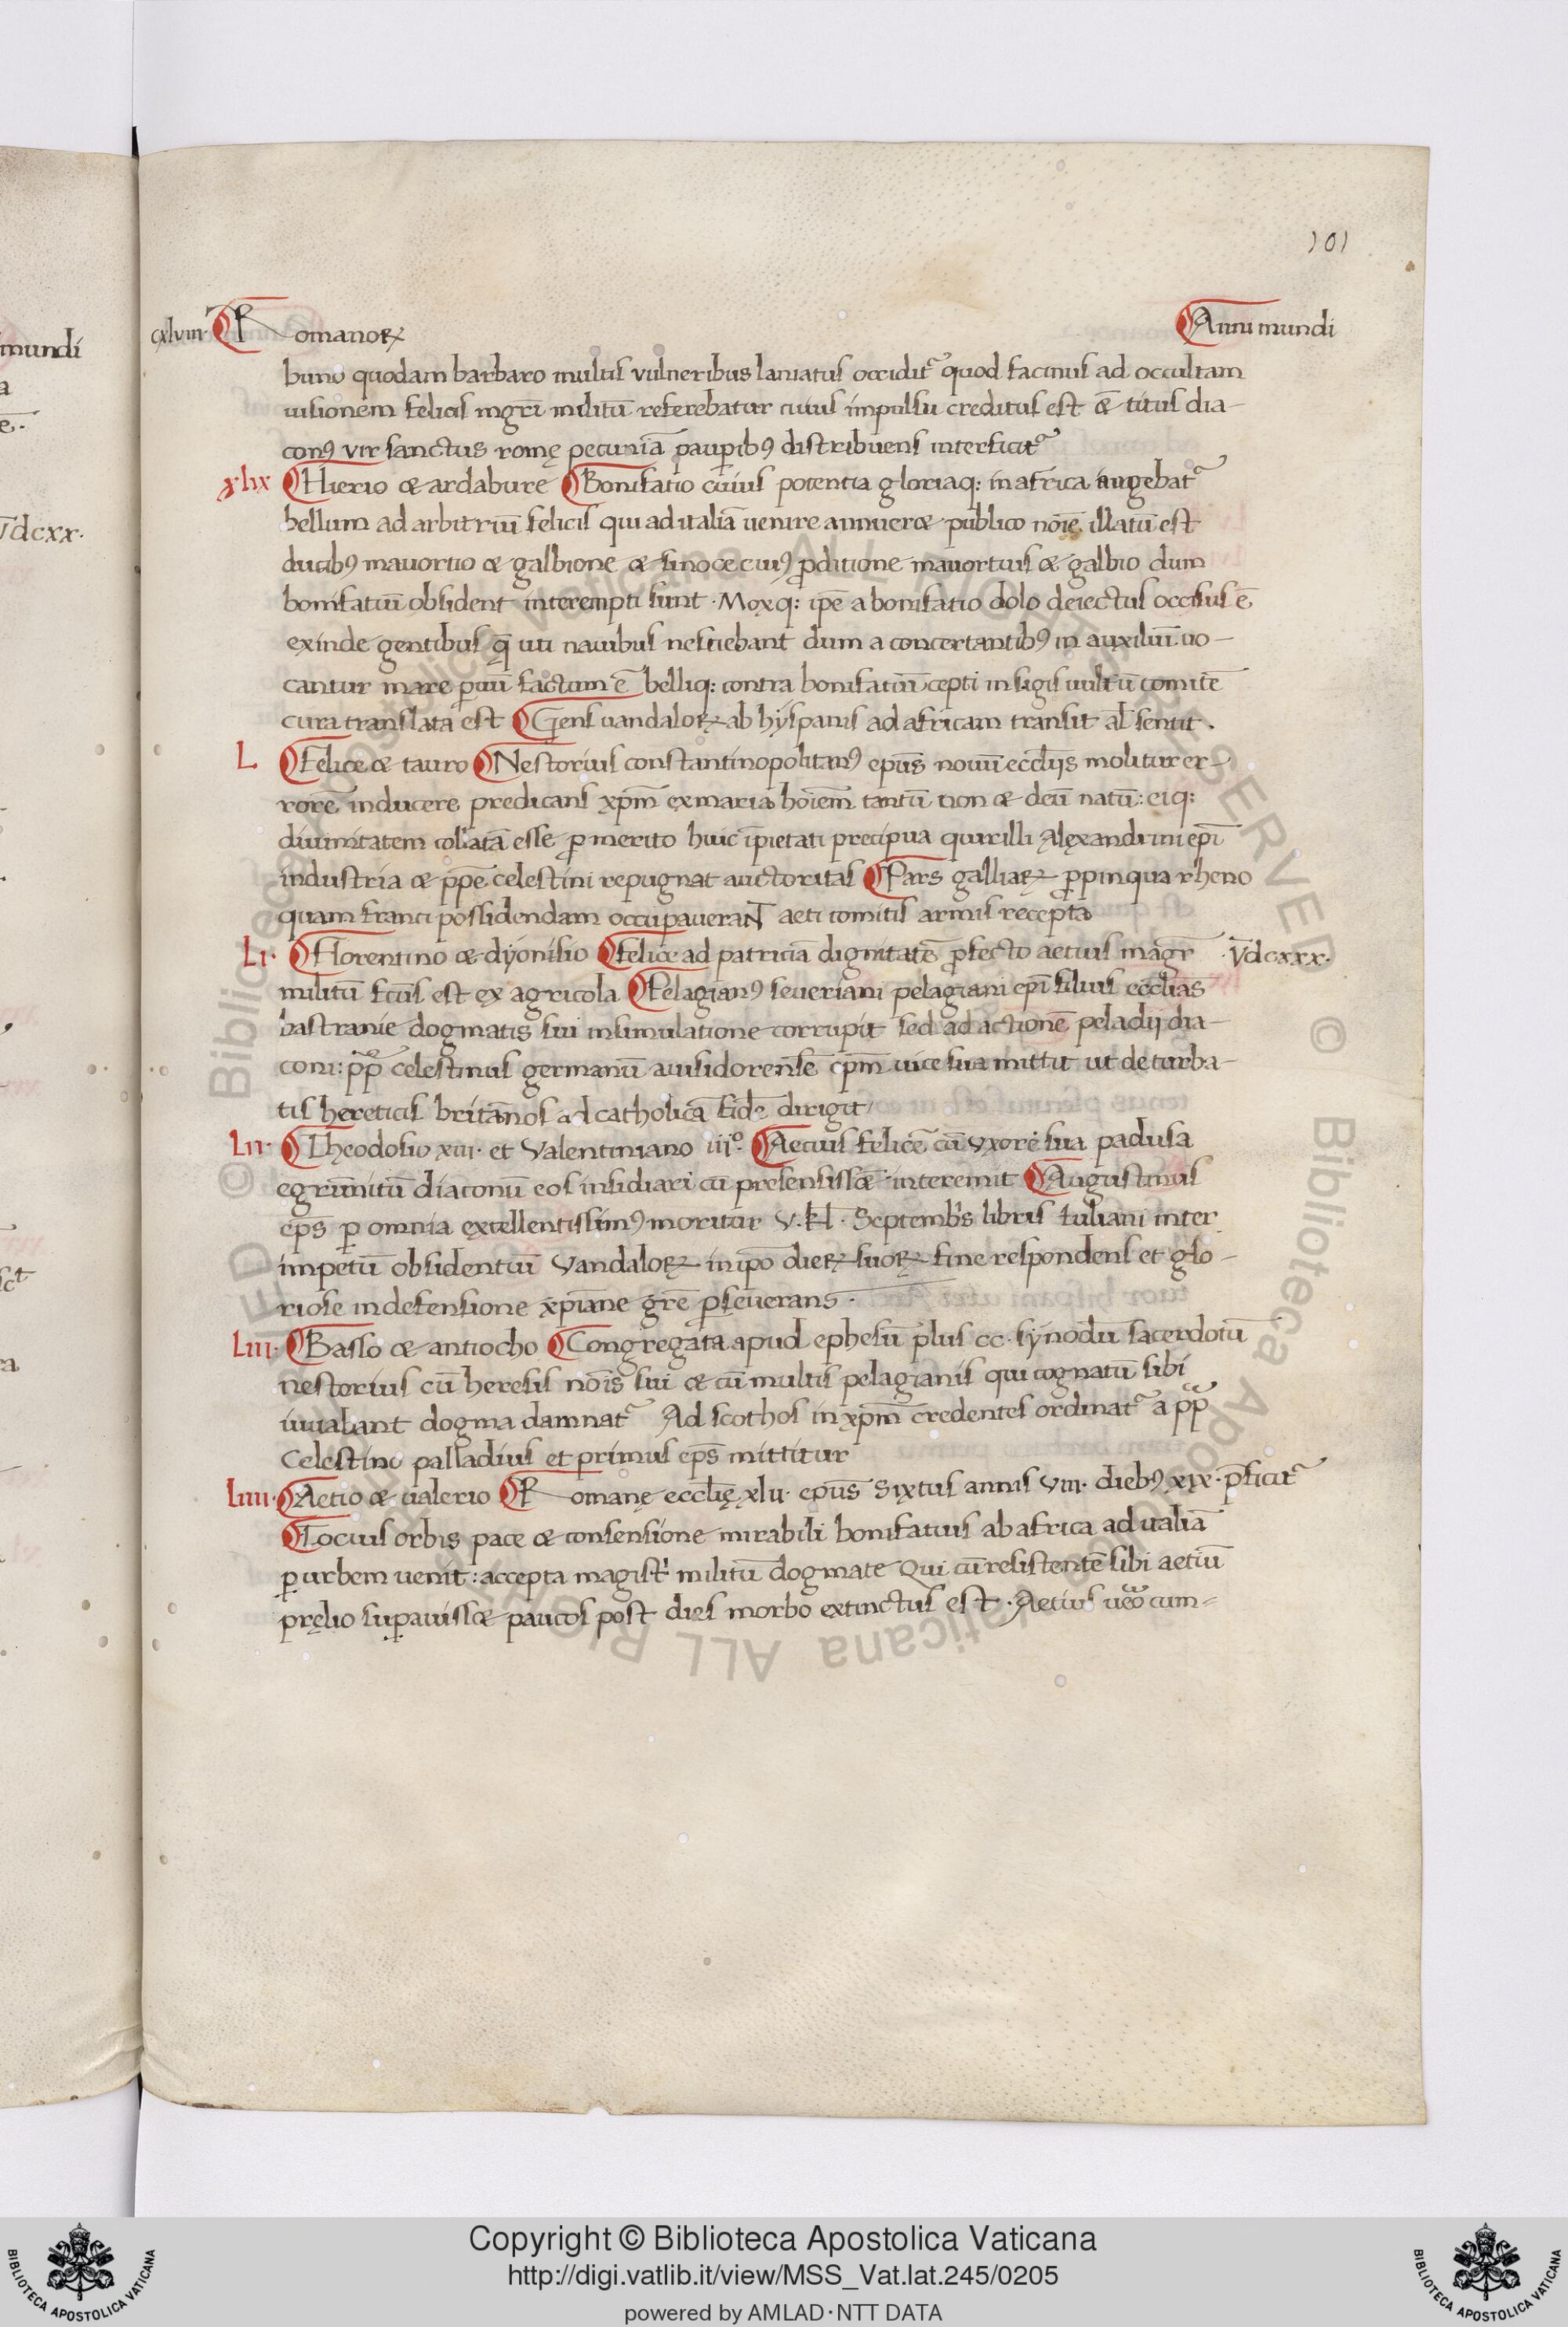 101
cxlviii· Romanoꝝ
Anni mundi
buno quodam barbaro multis vulneribus laniatus occidit᷑ quod facinus ad occultam
iusionem felicis mgr̄i militū referebatur cuius impulsu creditus est & titus dia-
conꝰ vir sanctus romę pecuniā paup̱ibꝰ distribuens interficit᷑
xlix Hierio & ardabure Bonifatio cuius potentia gloriaq: in africa augebat᷑
bellum ad arbitriū felicis qui ad italiā uenire annuer& publico noīe illatū est
ducibꝰ mauortio & galbione & sinoce cuiꝰ ꝓditione mauortius & galbio dum
bonifatiū obsident interempti sunt · Moxq: ip̄e a bonifatio dolo deiectus occisus ē
exinde gentibus q̄ uti nauibus nesciebant dum a concertantibꝰ in auxiliū uo-
cantur mare ꝑuiū factum ē belliq: contra bonifatiū cepti in sigisuultū comitē
cura translata est Gens uandaloꝝ ab hyspanis ad africam transit al' sentit .
L Felice & tauro Nestorius constantinopolitanꝰ ep̄us nouū eccl̄ijs molitur er-
rorē inducere predicans xp̄m ex maria hoīem tantū non & deū natū: eiq:
diuinitatem collatā esse ꝓ merito huic īpietati precipua quirilli Alexandrini ep̄i
industria & pp̄e celestini repugnat auctoritas Pars galliaꝝ ꝓpinqua rheno
quam franci possidendam occupaveraNT aeti comitis armis recepta
Li· Florentino & dyonisio Felice ad patriciā dignitatē ꝓfecto aetius magr̄ ·V̄dcxxx·
militū fcūs est ex agricola Pelagianꝰ seueriani pelagiani ep̄i filius eccl̄ias
bastranie dogmatis sui insimulatione corrupit sed ad actionē peladij dia-
coni: pp̄ celestinus germanū auisidorensē ep̄m uice sua mittit ut deturba-
tis hereticis britānos ad catholicā fidē dirigit
Lii· Theodosio xiii· et Valentiniano iii° Aetius felicē cū uxore sua padusa
egrunnitū diaconū eos insidiari cū presensiss& interemit Augustinus
ep̄s ꝑ omnia excellentissimꝰ moritur V. kl · Septemb's libris Iuliani inter
impetū obsidentiū Vandaloꝝ in ip̄o dieꝝ suoꝝ fine respondens et glo-
riose in defensione xp̄iane gr̄e ꝑseuerans ·
Liii· Basso & antiocho Congregata apud ephesū plus cc· synodū sacerdotū
nestorius cū heresis noīs sui & cū multis pelagianis qui cognatū sibi
iuuabant dogma damnat᷑ Ad scothos in xp̄m credentes ordinat᷑ a pp̄
Celestino palladius et primus ep̄s mittitur
Liiii· Aetio & ualerio Romanę eccl̄ię xlii· ep̄us Sixtus annis Viii· diebꝰ xix· p̄ficit᷑
Tocius orbis pace & consensione mirabili bonifatius ab africa ad italiā
ꝑ urbem uenit: accepta magist' militū dogmate Qui cū resistentē sibi aetiū
pręlio suꝑauiss& paucos post dies morbo extinctus est · Aetius uero cum-
mundi
V̄dcxx·
Copyright © Biblioteca Apostolica Vaticana
http://digi.vatlib.it/view/MSS_Vat.lat.245/0205
powered by AMLAD·NTT DATA
BIBLIOTECA APOSTOLICA VATICANA
BIBLIOTECA APOSTOLICA VATICANA